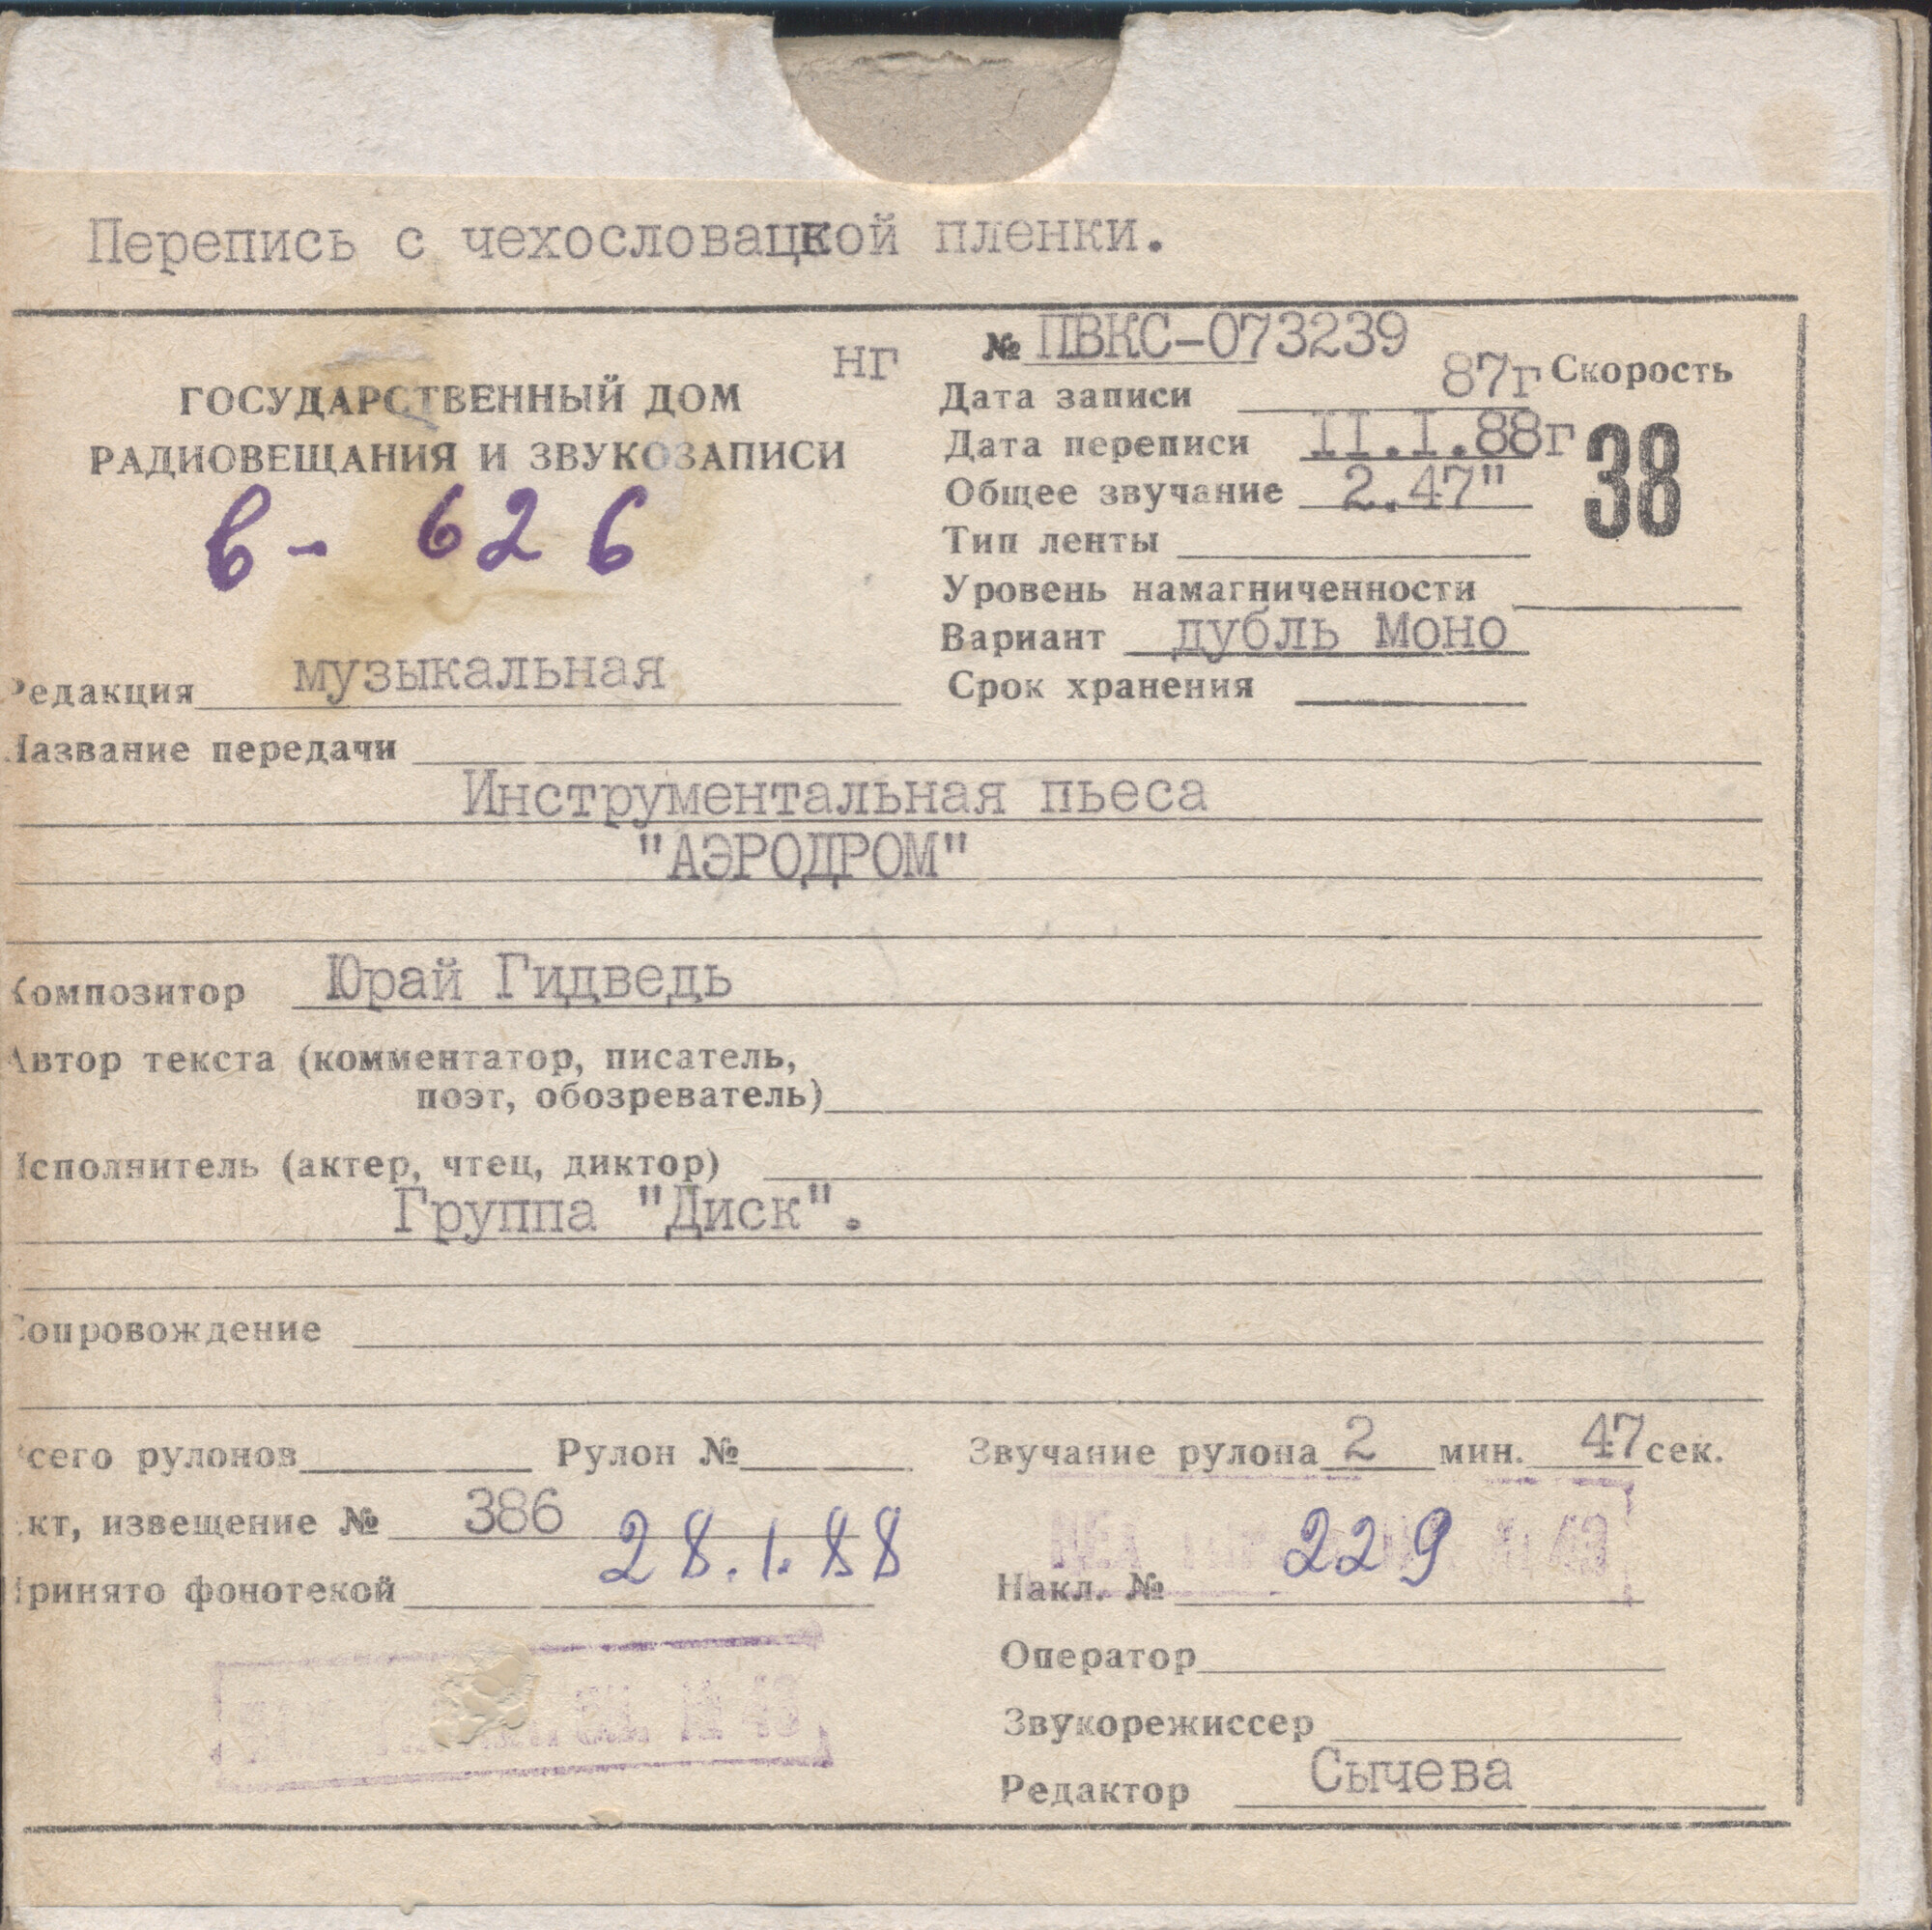 Перепись с чехословацкой пленки.
нг
№ ПВКС-073239
ГОСУДАРСТВЕННЫЙ ДОМ
РАДИОВЕЩАНИЯ И ЗВУКОЗАПИСИ
в- 626
Дата записи 87г
Скорость
38
Дата переписи II.I.88г
Общее звучание 2.47"
Тип ленты
Уровень намагниченности
Вариант дубль моно
Срок хранения
Редакция музыкальная
Название передачи
Инструментальная пьеса
"АЭРОДРОМ"
Композитор Юрай Гидведь
Автор текста (комментатор, писатель,
поэт, обозреватель)
Исполнитель (актер, чтец, диктор)
Группа "Диск".
Сопровождение
Всего рулонов Рулон № Звучание рулона 2 мин. 47 сек.
Акт, извещение № 386
28.1.88
Принято фонотекой
Накл. № 229
Оператор
Звукорежиссер
Редактор Сычева